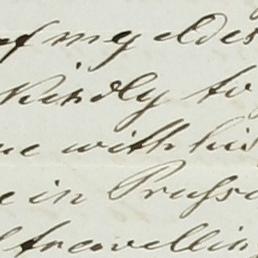 of my eldes
kindly to
ne with his
e in Prussi
travellin